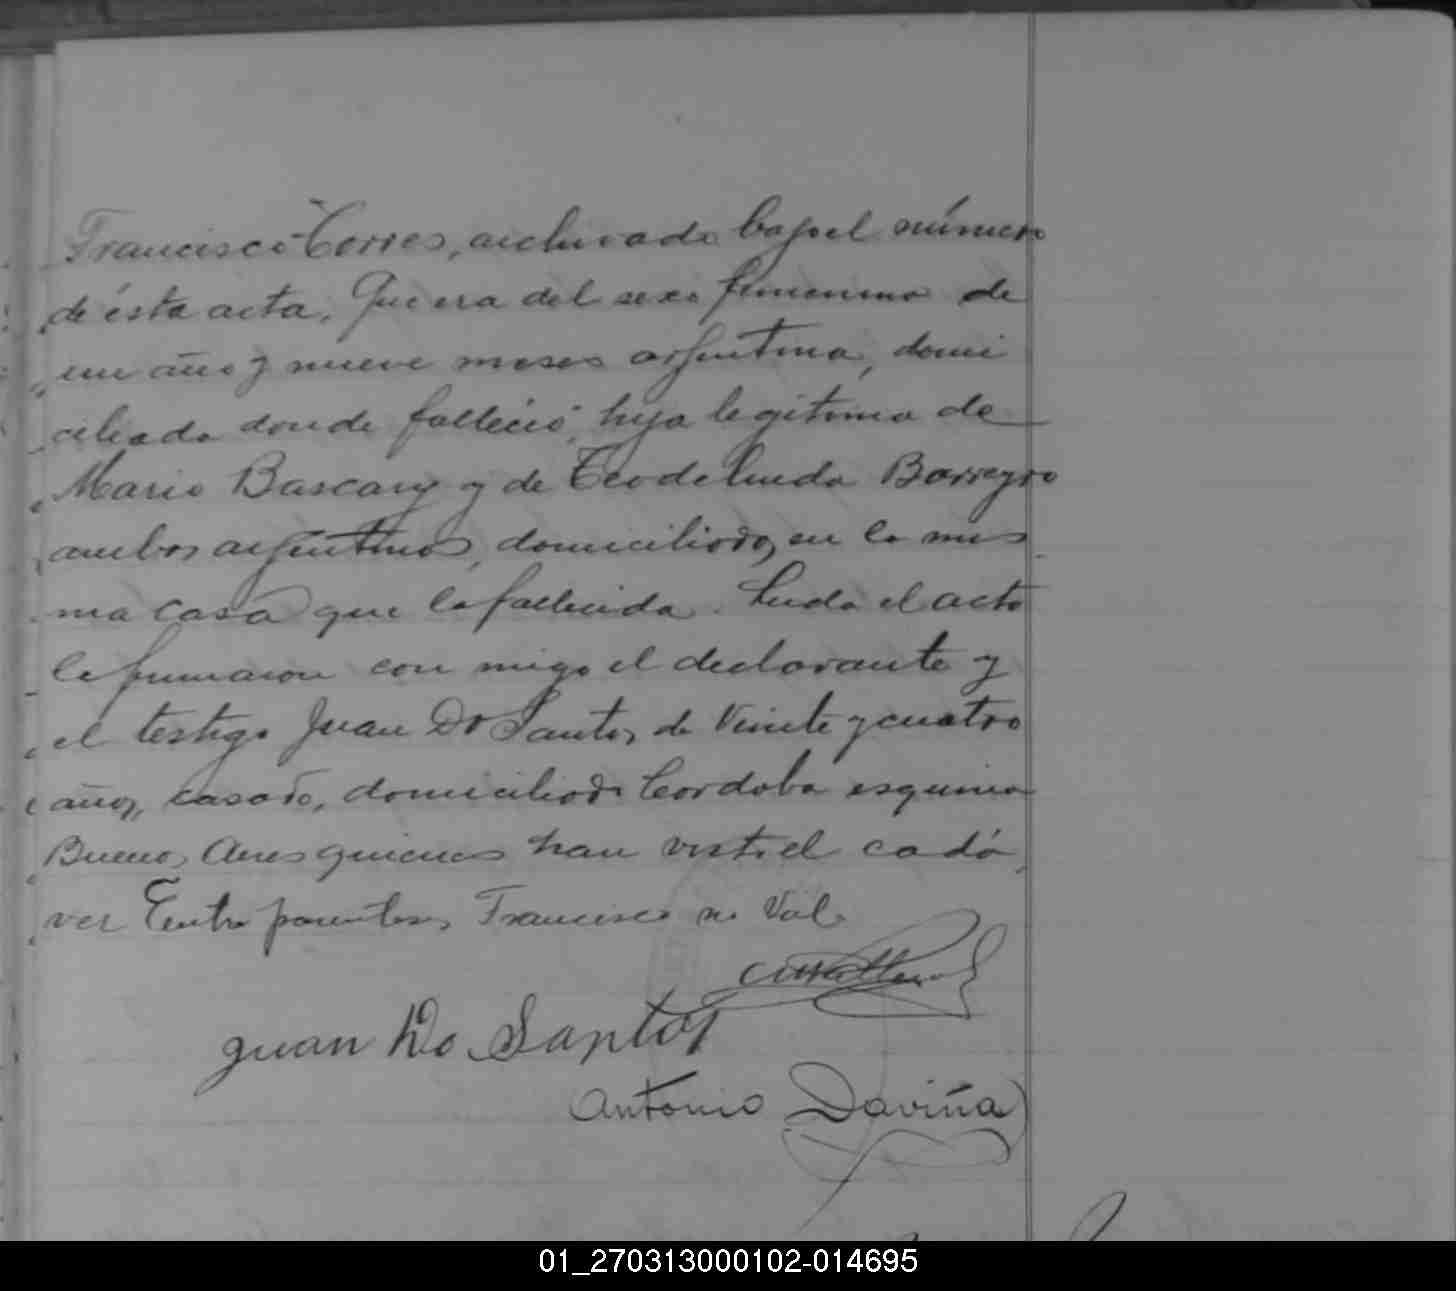 Francisco Torres, archivado bajo el número
de ésta acta. Que era del sexo femenino de
un año y nueve meses argentina, domi
ciliada donde falleció, hija legítima de
Mario Bascary y de Teodelinda Barreyro
ambos argentinos, domiciliados en la mis
ma casa que la fallecida. Leida el acta
la firmaron con migo el declarante y
el testigo Juan Do Santos de Veinte y cuatro
años, casado, domiciliado Cordoba esquina
Buenos Aires quienes han visto el cadá
ver Entre parentesis Francisco no Vale
Juan Do Santos
Antonio Daviña
01_270313000102-014695